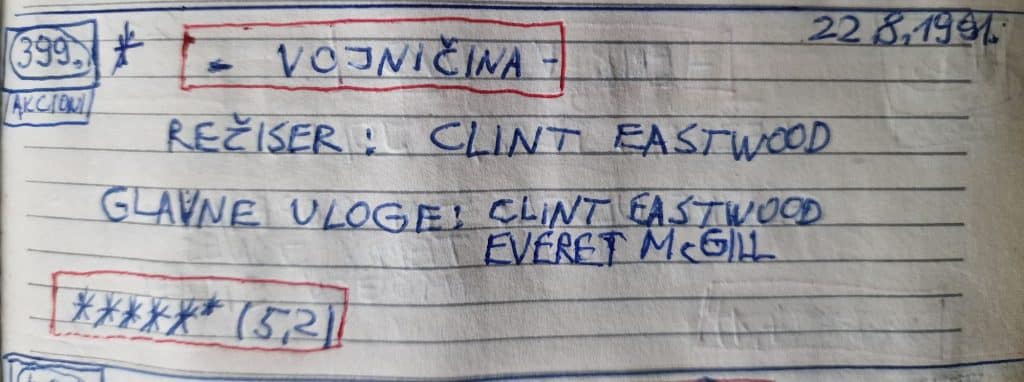 399. * - VOJNIČINA - 22 8.1991.
AKCIONI
REČISER: CLINT EASTWOOD
GLAVNE ULOGE: CLINT EASTWOOD
EVERET McGILL
****** (5,2)